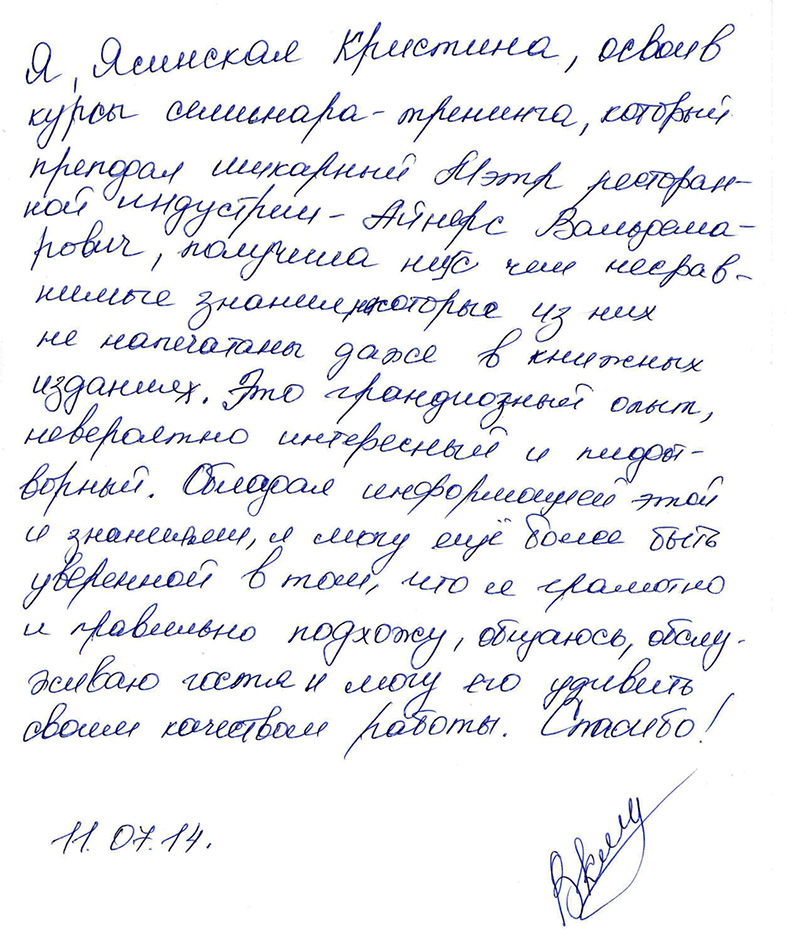 Я, Ясинская Кристина, освоив
курсы семинара-тренинга, который
преподал шикарный Мэтр ресторан-
ной индустрии - Айнерс Вальдема-
рович, получила ни с чем несрав-
нимые знания, которые из них
не напечатаны даже в книжных
изданиях. Это грандиозный опыт,
невероятно интересный и плодот-
ворный. Обладая информацией этой
и знаниями, я могу ещё более быть
уверенной в том, что я грамотно
и правильно подхожу, общаюсь, обслу-
живаю гостя и могу его удивить
своим качеством работы. Спасибо!
11.07.14.